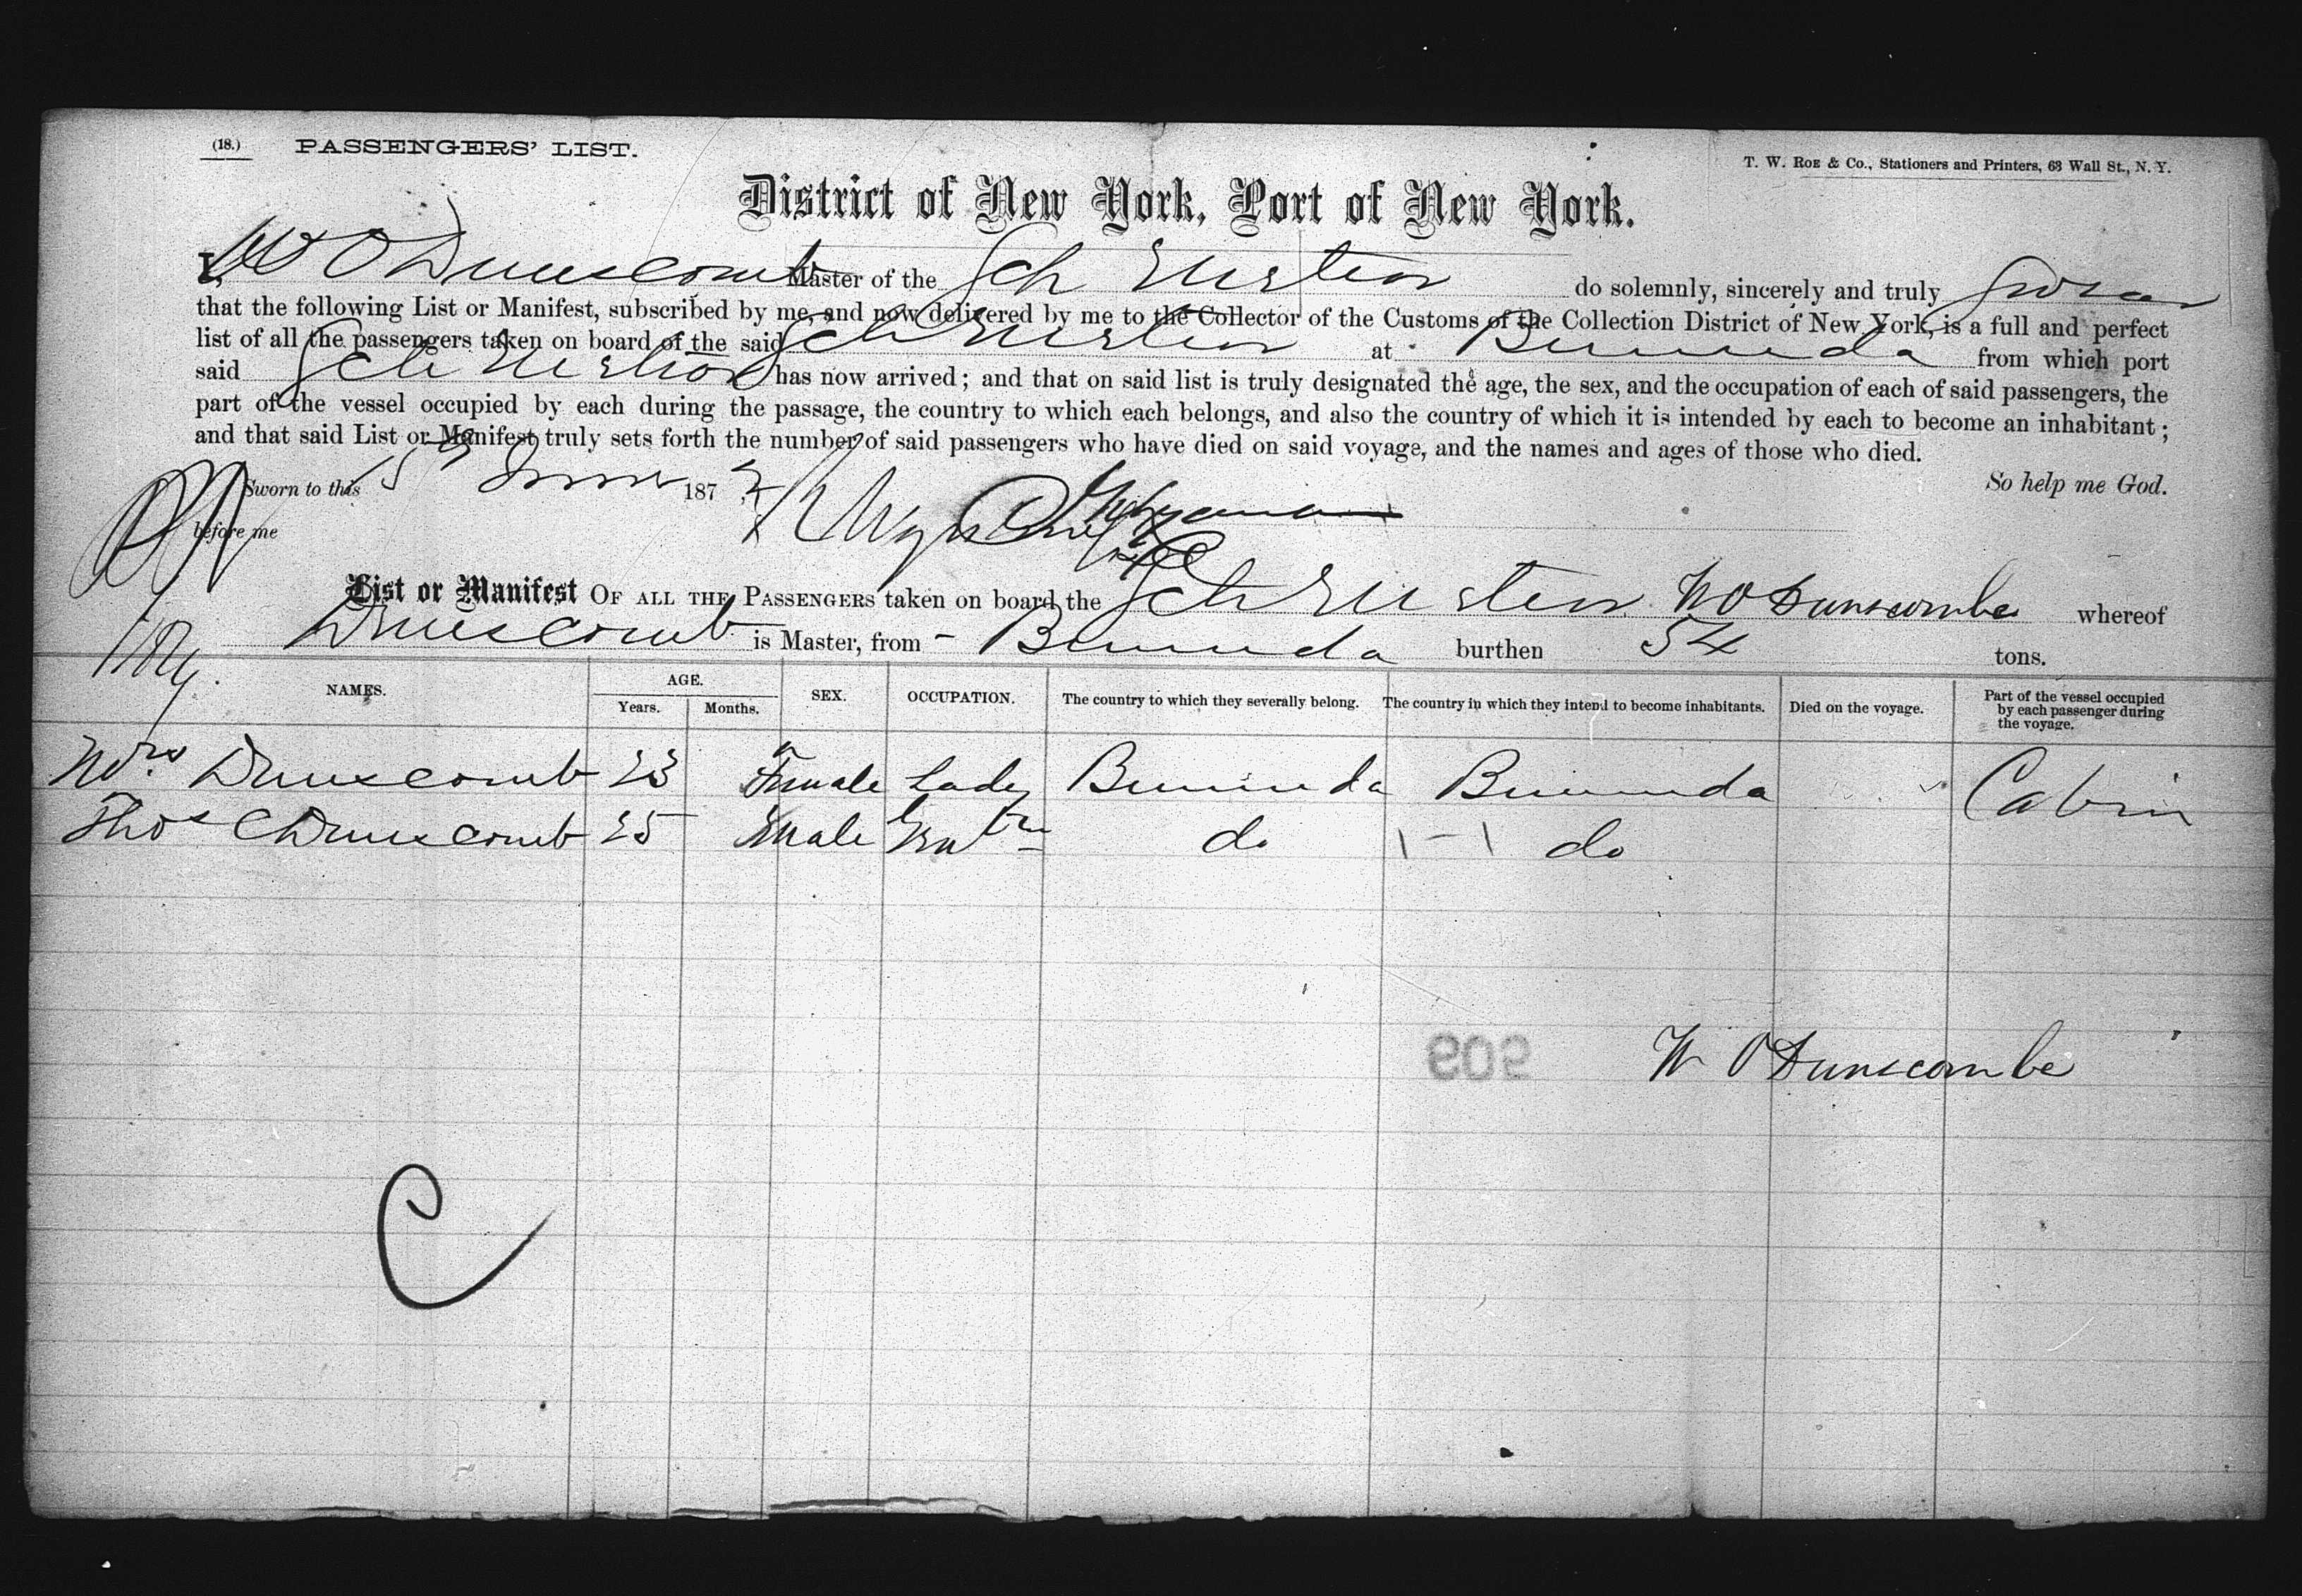 (18.) PASSENGERS' LIST.
T. W. ROE & Co., Stationers and Printers, 63 Wall St., N. Y.
District of New York, Port of New York.
I, W O Dunscomb Master of the Sch do solemnly, sincerely and truly Swear
that the following List or Manifest, subscribed by me, and now delivered by me to the Collector of the Customs of the Collection District of New York, is a full and perfect
list of all the passengers taken on board of the said Sch at Bermuda from which port
said Sch has now arrived; and that on said list is truly designated the age, the sex, and the occupation of each of said passengers, the
part of the vessel occupied by each during the passage, the country to which each belongs, and also the country of which it is intended by each to become an inhabitant;
and that said List or Manifest truly sets forth the number of said passengers who have died on said voyage, and the names and ages of those who died.
So help me God.
Sworn to this 187
before me
List or Manifest OF ALL THE PASSENGERS taken on board the Sch W O Dunscombe whereof
Dunscomb is Master, from - Bermuda burthen 54 tons.
NAMES. AGE. Years. Months. SEX. OCCUPATION. The country to which they severally belong. The country in which they intend to become inhabitants. Died on the voyage. Part of the vessel occupied by each passenger during the voyage.
Mrs Dunscomb 23 Female Lady Bermuda Bermuda Cabin
Thos Dunscomb 25 Male do do
W O Dunscombe
509
C